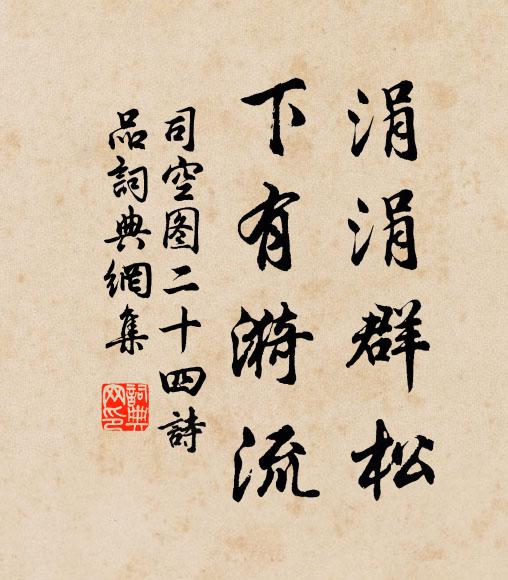 涓涓群松
下有漪流
司空图二十四詩
品詞典網集
詞典
网印